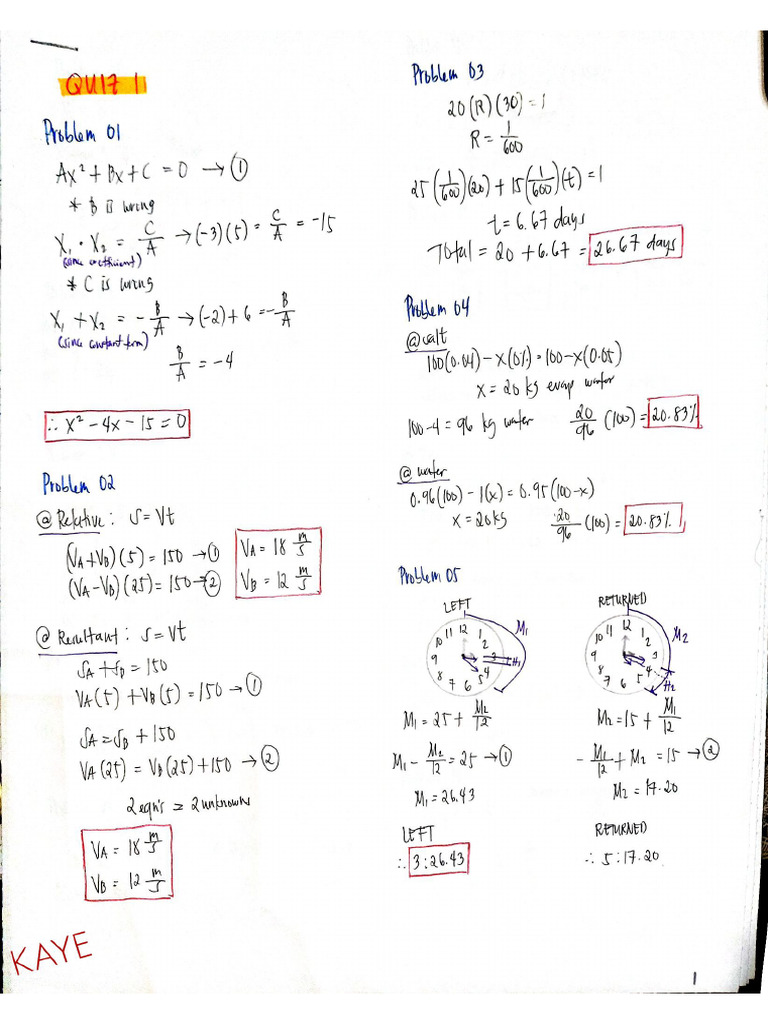 QUIZ 1
Problem 01
Ax² + Bx + C = 0 → ①
* B is wrong
x₁ · x₂ = C/A → (-3)(5) = C/A = -15
(sine coefficient)
* C is wrong
x₁ + x₂ = -B/A → (-2) + 6 = -B/A
(sine constant term)
B/A = -4
∴ x² - 4x - 15 = 0
Problem 02
@ Relative: S = Vt
(VA + VB)(5) = 150 → ①
(VA - VB)(25) = 150 → ②
VA = 18 m/s
VB = 12 m/s
@ Resultant: S = Vt
SA + SB = 150
VA(5) + VB(5) = 150 → ①
SA = SB + 150
VA(25) = VB(25) + 150 → ②
2 eqn's = 2 unknowns
VA = 18 m/s
VB = 12 m/s
KAYE
Problem 03
20(R)(30) = 1
R = 1/600
25(1/600)(20) + 15(1/600)(t) = 1
t = 6.67 days
Total = 20 + 6.67 = 26.67 days
Problem 04
@ salt
100(0.04) - x(0%) = 100 - x(0.05)
x = 20 kg evap water
100 - 4 = 96 kg water 20/96 (100) = 20.83%
@ water
0.96(100) - 1(x) = 0.95(100 - x)
x = 20 kg 20/96 (100) = 20.83%
Problem 05
LEFT
12 1 2 3 4 5 6 7 8 9 10 11
M₁
H₁
M₁ = 25 + M₂/12
M₁ - M₂/12 = 25 → ①
M₁ = 26.43
LEFT
∴ 3:26.43
RETURNED
12 1 2 3 4 5 6 7 8 9 10 11
M₂
H₂
M₂ = 15 + M₁/12
-M₁/12 + M₂ = 15 → ②
M₂ = 17.20
RETURNED
∴ 5:17.20
1